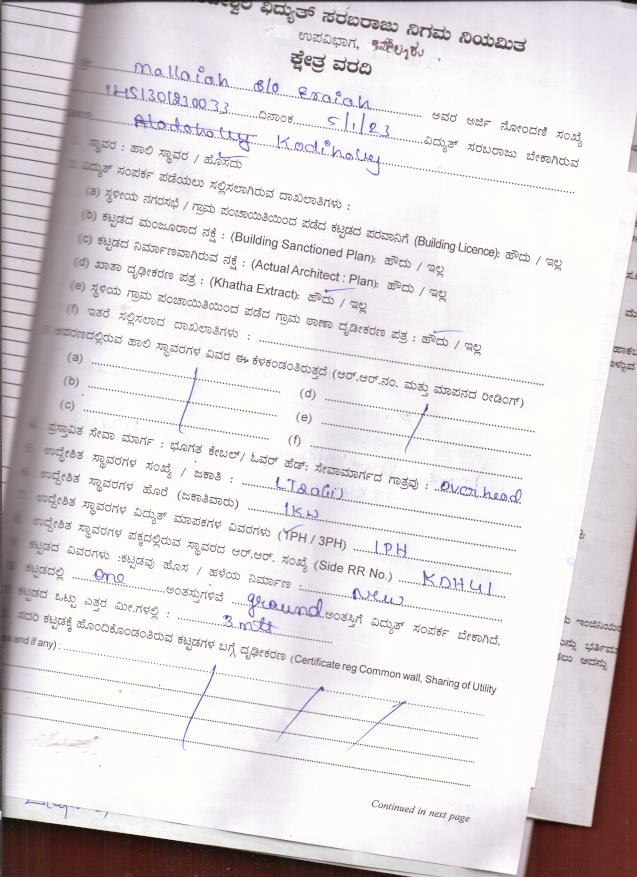 ವಿದ್ಯುತ್ ಸರಬರಾಜು ನಿಗಮ ನಿಯಮಿತ
ಉಪವಿಭಾಗ,
ಕ್ಷೇತ್ರ ವರದಿ
Mallaiah S/o Eraiah ಅವರ ಅರ್ಜಿ ನೋಂದಣಿ ಸಂಖ್ಯೆ
1HS1301230033 ದಿನಾಂಕ 5/1/23 ವಿದ್ಯುತ್ ಸರಬರಾಜು ಬೇಕಾಗಿರುವ
Kodihally
1. ಸ್ಥಾವರ : ಹಾಲಿ ಸ್ಥಾವರ / ಹೊಸದು
2. ವಿದ್ಯುತ್ ಸಂಪರ್ಕ ಪಡೆಯಲು ಸಲ್ಲಿಸಲಾಗಿರುವ ದಾಖಲಾತಿಗಳು :
(a) ಸ್ಥಳೀಯ ನಗರಸಭೆ / ಗ್ರಾಮ ಪಂಚಾಯಿತಿಯಿಂದ ಪಡೆದ ಕಟ್ಟಡದ ಪರವಾನಿಗೆ (Building Licence): ಹೌದು / ಇಲ್ಲ
(b) ಕಟ್ಟಡದ ಮಂಜೂರಾದ ನಕ್ಷೆ : (Building Sanctioned Plan): ಹೌದು / ಇಲ್ಲ
(c) ಕಟ್ಟಡದ ನಿರ್ಮಾಣವಾಗಿರುವ ನಕ್ಷೆ : (Actual Architect : Plan): ಹೌದು / ಇಲ್ಲ
(d) ಖಾತಾ ದೃಢೀಕರಣ ಪತ್ರ : (Khatha Extract): ಹೌದು / ಇಲ್ಲ
(e) ಸ್ಥಳಿಯ ಗ್ರಾಮ ಪಂಚಾಯಿತಿಯಿಂದ ಪಡೆದ ಗ್ರಾಮ ಠಾಣಾ ದೃಢೀಕರಣ ಪತ್ರ : ಹೌದು / ಇಲ್ಲ
(f) ಇತರೆ ಸಲ್ಲಿಸಲಾದ ದಾಖಲಾತಿಗಳು :
ಆವರಣದಲ್ಲಿರುವ ಹಾಲಿ ಸ್ಥಾವರಗಳ ವಿವರ ಈ ಕೆಳಕಂಡಂತಿರುತ್ತದೆ (ಆರ್.ಆರ್.ನಂ. ಮತ್ತು ಮಾಪನದ ರೀಡಿಂಗ್)
(a) (d)
(b) (e)
(c) (f)
4. ಪ್ರಸ್ತಾವಿತ ಸೇವಾ ಮಾರ್ಗ : ಭೂಗತ ಕೇಬಲ್/ ಓವರ್ ಹೆಡ್: ಸೇವಾಮಾರ್ಗದ ಗಾತ್ರವು : overhead
ಉದ್ದೇಶಿತ ಸ್ಥಾವರಗಳ ಸಂಖ್ಯೆ / ಜಕಾತಿ :
ಉದ್ದೇಶಿತ ಸ್ಥಾವರಗಳ ಹೊರೆ (ಜಕಾತಿವಾರು) 1KW
ಉದ್ದೇಶಿತ ಸ್ಥಾವರಗಳ ವಿದ್ಯುತ್ ಮಾಪಕಗಳ ವಿವರಗಳು (1PH / 3PH) 1PH
ಉದ್ದೇಶಿತ ಸ್ಥಾವರಗಳ ಪಕ್ಕದಲ್ಲಿರುವ ಸ್ಥಾವರದ ಆರ್.ಆರ್. ಸಂಖ್ಯೆ (Side RR No.) KDH41
ಕಟ್ಟಡದ ವಿವರಗಳು :ಕಟ್ಟಡವು ಹೊಸ / ಹಳೆಯ ನಿರ್ಮಾಣ : New
ಕಟ್ಟಡದಲ್ಲಿ one ಅಂತಸ್ತುಗಳಿವೆ ground ಅಂತಸ್ತಿಗೆ ವಿದ್ಯುತ್ ಸಂಪರ್ಕ ಬೇಕಾಗಿದೆ.
ಕಟ್ಟಡದ ಒಟ್ಟು ಎತ್ತರ ಮೀ.ಗಳಲ್ಲಿ : 3 mtr
ಸದರಿ ಕಟ್ಟಡಕ್ಕೆ ಹೊಂದಿಕೊಂಡಂತಿರುವ ಕಟ್ಟಡಗಳ ಬಗ್ಗೆ ದೃಢೀಕರಣ (Certificate reg Common wall, Sharing of Utility
and if any) :
Continued in next page